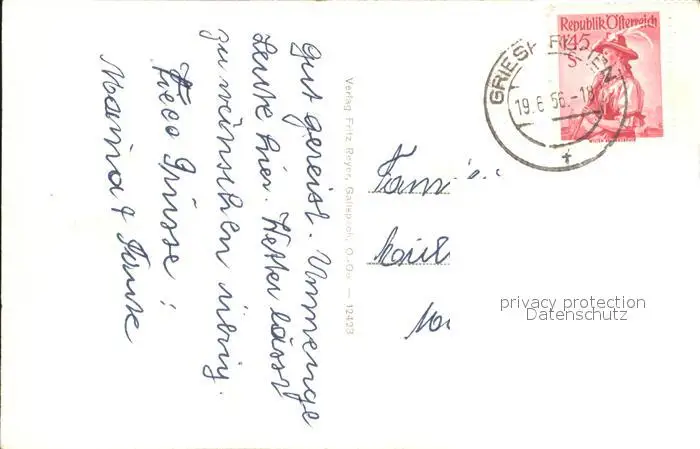 gut gereist. Unmenge
Leute hier. Wetter lässt
zu wünschen übrig.
Viele Grüsse!
Mama &
Verlag Fritz Reyer, Gallspach, O.-Oe. — 12423
Fam
Republik Österreich
1.45
S
GRIESKIRCHEN
19.6.56.-18
privacy protection
Datenschutz